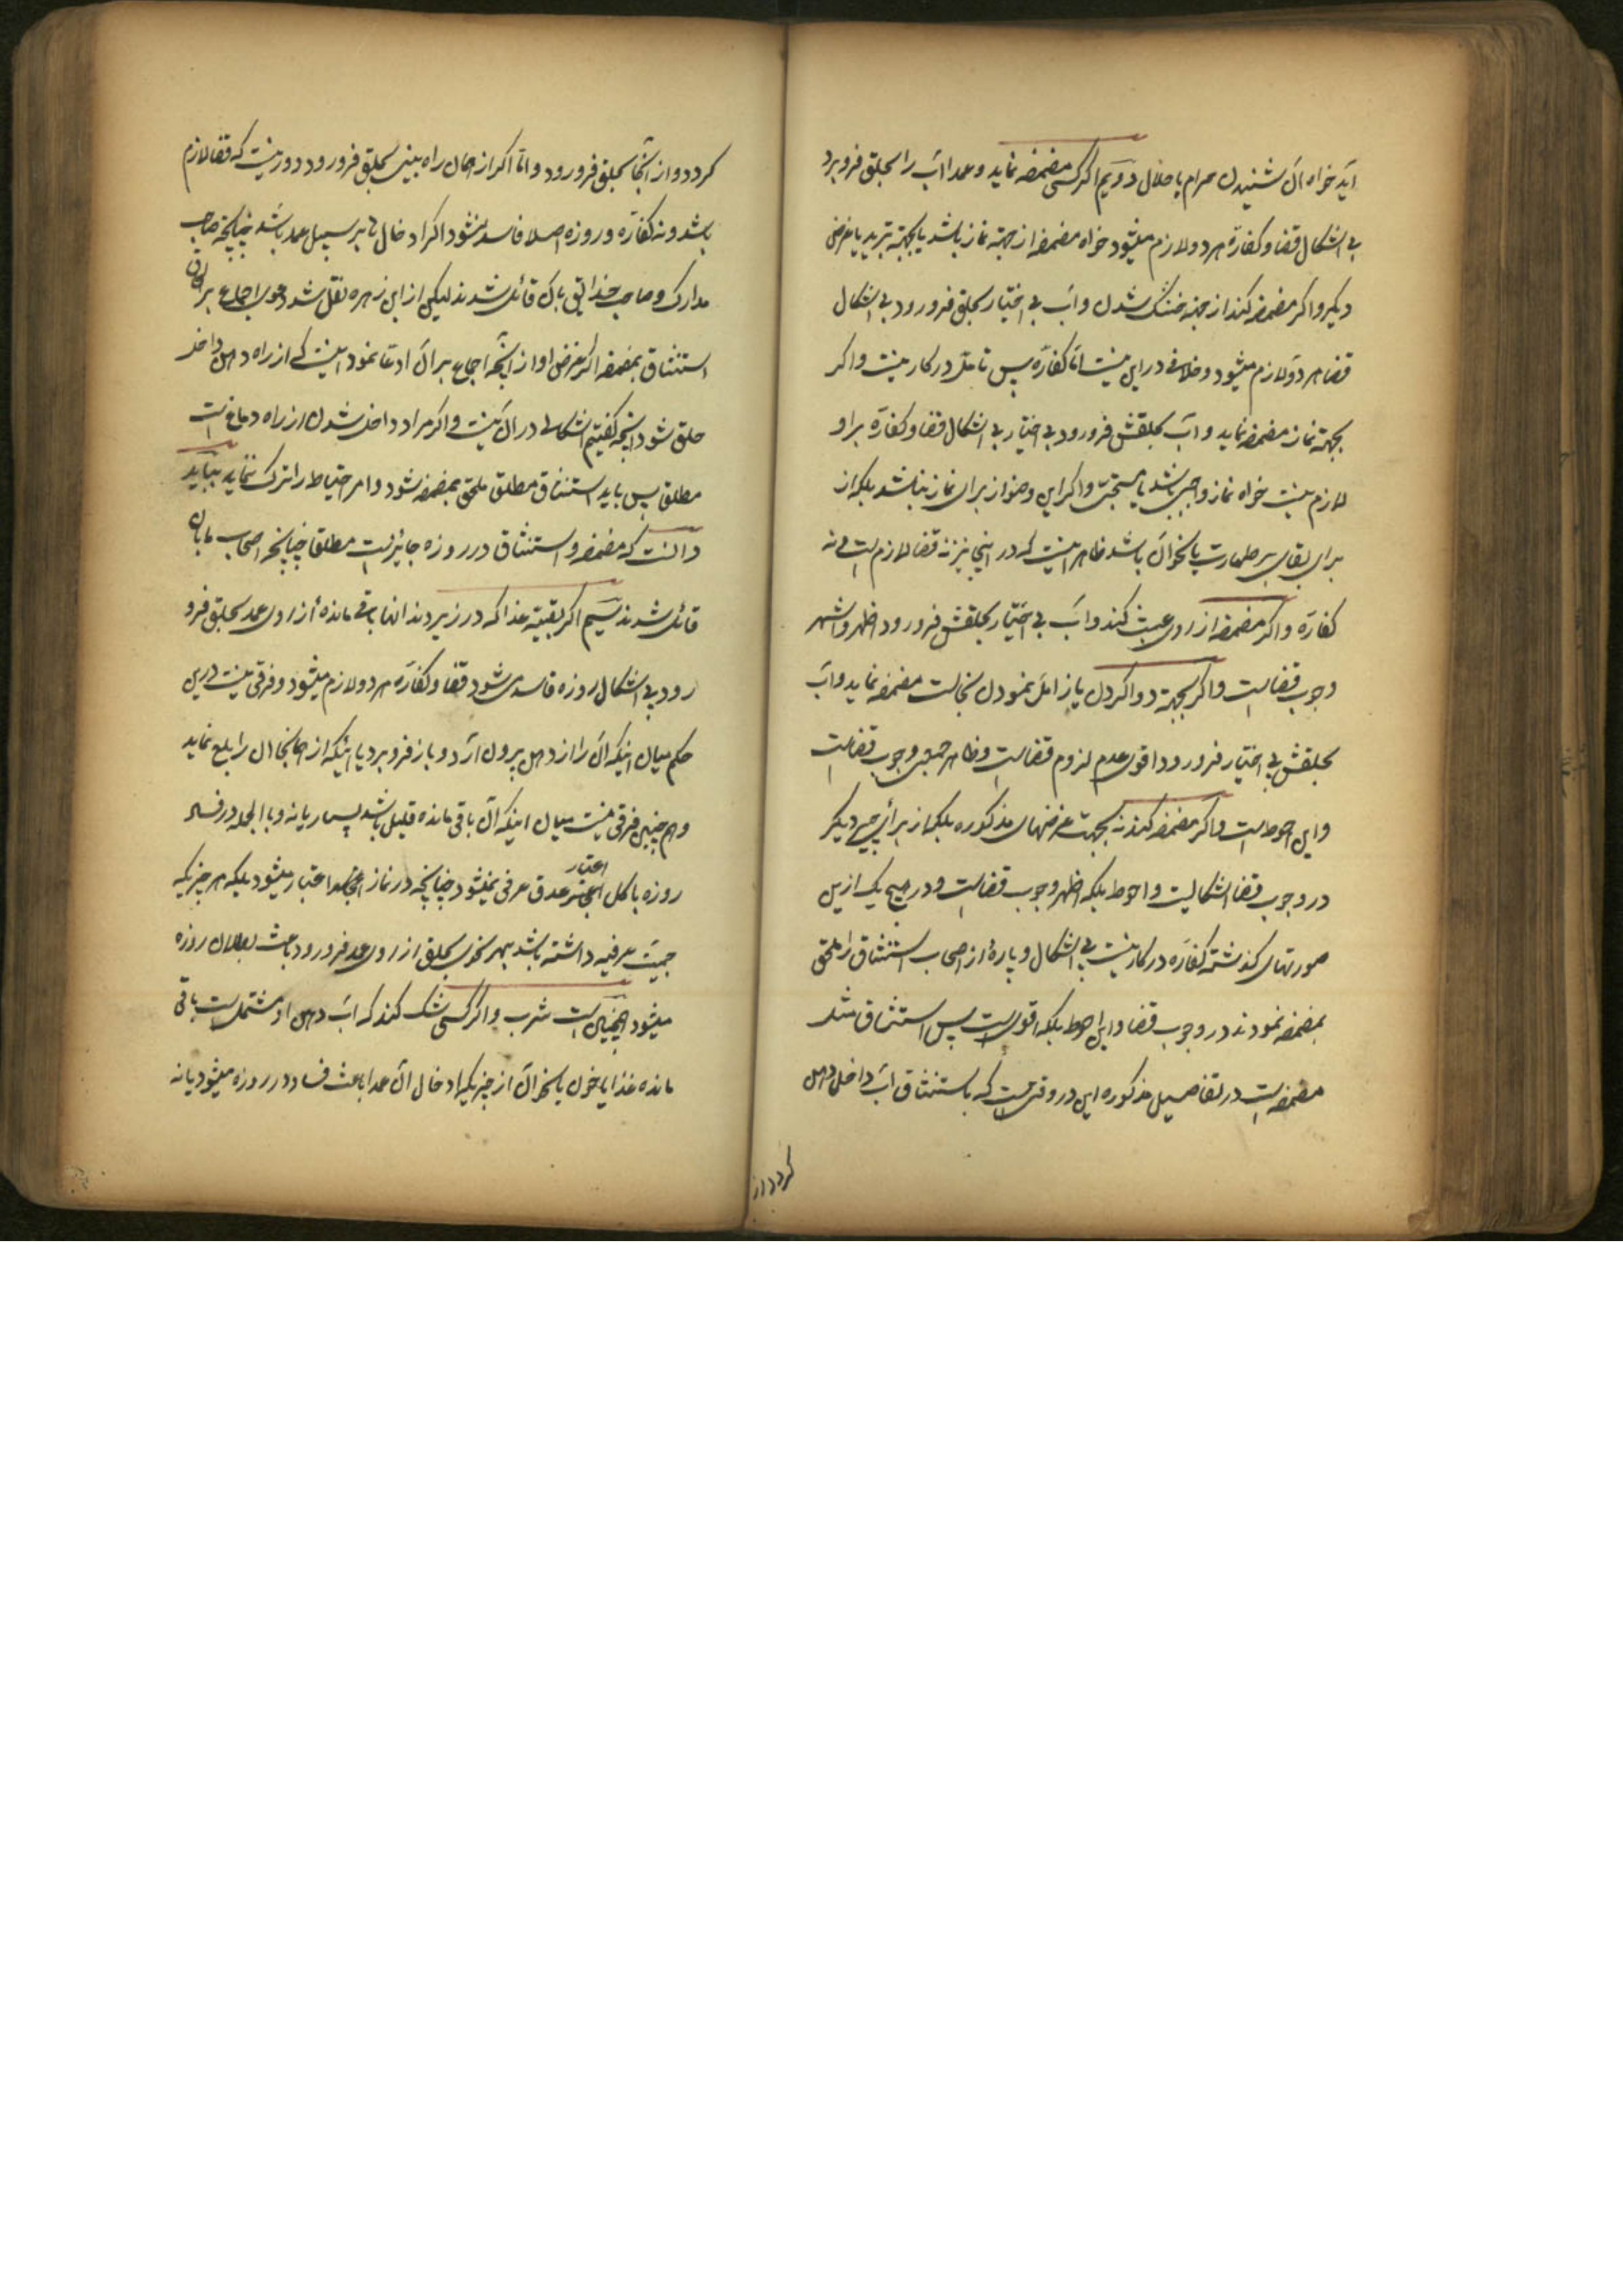 آید خواه آن شنیدن حرام یا حلال دویم اگر کسی مضمضه نماید و عمدا آب را بحلق فرو برد
بی اشکال قضا و کفاره هر دو لازم میشود خواه مضمضه از جهة نماز باشد یا بجهة تبرید یا غرض
دیگر و اگر مضمضه کند از جهة خنک شدن و آب بی اختیار بحلق فرو رود بی اشکال
قضا لازم میشود و خلافی در این نیست اما کفاره پس تامل در کار نیست و اگر
بجهة نماز مضمضه نماید و آب بحلقش فرو رود بی اختیار بی اشکال قضا و کفاره بر او
لازم نیست خواه نماز واجبی باشد یا مستحبی و اگر این وضو از برای نماز نباشد بلکه از
برای بقای بر طهارت یا نحو آن باشد ظاهر اینست که در اینجا نیز نه قضا لازم است و نه
کفاره و اگر مضمضه از روی عبث کند و آب بی اختیار بحلقش فرو رود اظهر و اشهر
وجوب قضا است و اگر بجهة دوا کردن یا زایل نمودن نجاست مضمضه نماید و آب
بحلقش بی اختیار فرو رود اقوی عدم لزوم قضا است و ظاهر جمعی وجوب قضا است
و این احوط است و اگر مضمضه کند نه بجهت غرضهای مذکوره بلکه از برای چیز دیگر
در وجوب قضا اشکالیست و احوط بلکه اظهر وجوب قضا است و در هیچ یک ازین
صورتهای گذشته کفاره در کار نیست بی اشکال و پارهٔ از اصحاب استنشاق را ملحق
بمضمضه نمودند در وجوب قضا و این احوط بلکه اقوی است پس استنشاق مثل
مضمضه است در تفاصیل مذکوره این در وقتی است که باستنشاق آب داخل دهن
گردد و از
گردد و از آنجا بحلق فرو رود و اما اگر از همان راه بینی بحلق فرو رود دور نیست که قضا لازم
باشد و نه کفاره و روزه اصلا فاسد نشود اگر ادخال بر سبیل عمد باشد چنانچه صاحب
مدارک و صاحب حدائق بآن قائل شدند لیکن از ابن زهره نقل شد دعوی اجماع بر الحاق
استنشاق بمضمضه اگر غرض او از آنچه اجماع بر آن ادعا نمود اینست که از راه دهن داخل
حلق شود آنچه گفتیم اشکالی در آن نیست و اگر مراد داخل شدن از راه دماغ است
مطلق پس باید استنشاق مطلق ملحق بمضمضه شود و امر احتیاط را ترک ننماید بباید
دانست که مضمضه و استنشاق در روزه جایز است مطلقا چنانچه اصحاب ما بآن
قائل شدند سیم اگر بقیه غذا که در زیر دندانها باقی مانده از روی عمد بحلق فرو
رود بی اشکال روزه فاسد می شود قضا و کفاره هر دو لازم میشود و فرقی نیست درین
حکم میان اینکه آن را از دهن بیرون آرد و باز فرو برد یا اینکه از همانجا آن را بلع نماید
و هم چنین فرقی نیست میان اینکه آن باقی مانده قلیل باشد بسیار یا نه و بالجمله در فساد
روزه باکل اعتبار صدق عرفی نمیشود چنانچه در نماز اعتبار میشود بلکه هر چیزیکه
جمیت عرفیه داشته باشد بهر نحوی بحلق از روی عمد فرو رود باعث بطلان روزه
میشود همچنین است شرب و اگر کسی شک کند که آب دهن او مشتمل است باقی
مانده غذا یا خون یا نحو آن از چیزیکه ادخال آن عمدا باعث فساد در روزه میشود یا نه